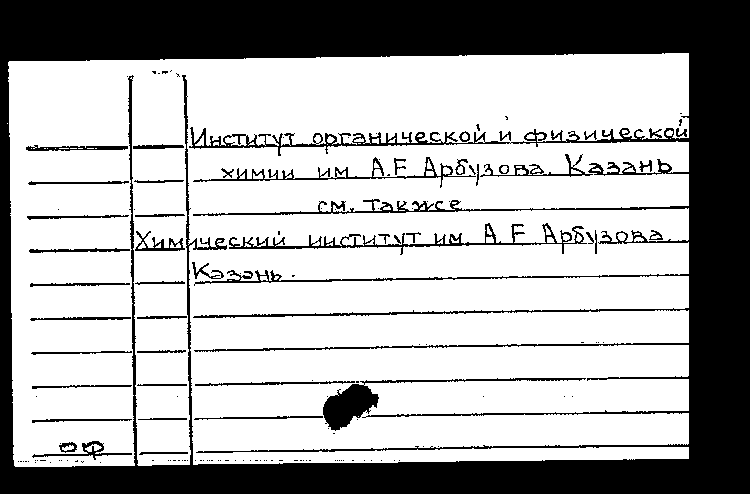 Институт органической и физической
химии им. А.Е Арбузова. Казань
см. также
Химический институт им. А. Е Арбузова.
Казань.
оф